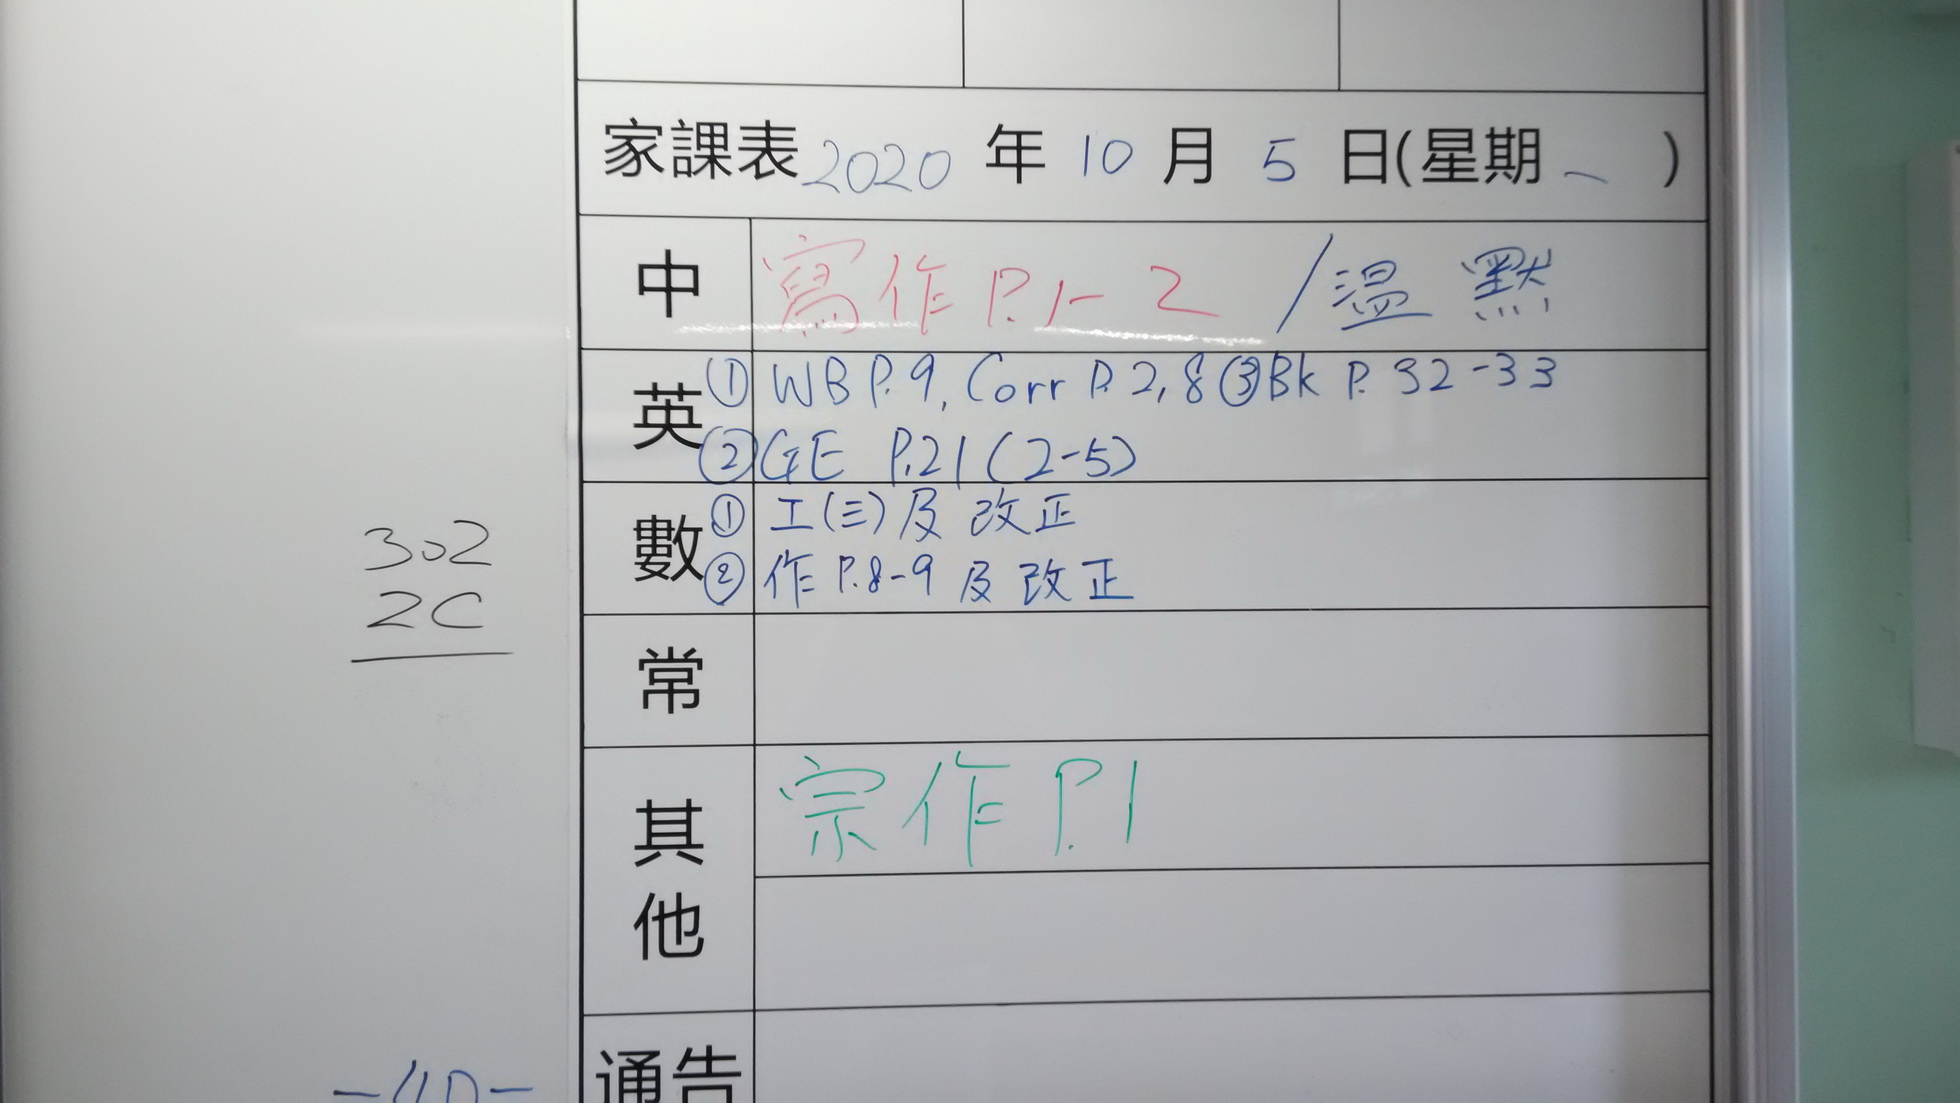 家課表 2020 年 10 月 5 日(星期一)
中 寫作 P.1-2 /溫 默
英 ① WB P.9, Corr P.2,8 ③Bk P.32-33
② GE P.21(2-5)
數 ① 工(三)及 改正
② 作 P.8-9 及 改正
常
其他 宗作 P.1
通告
302
2C